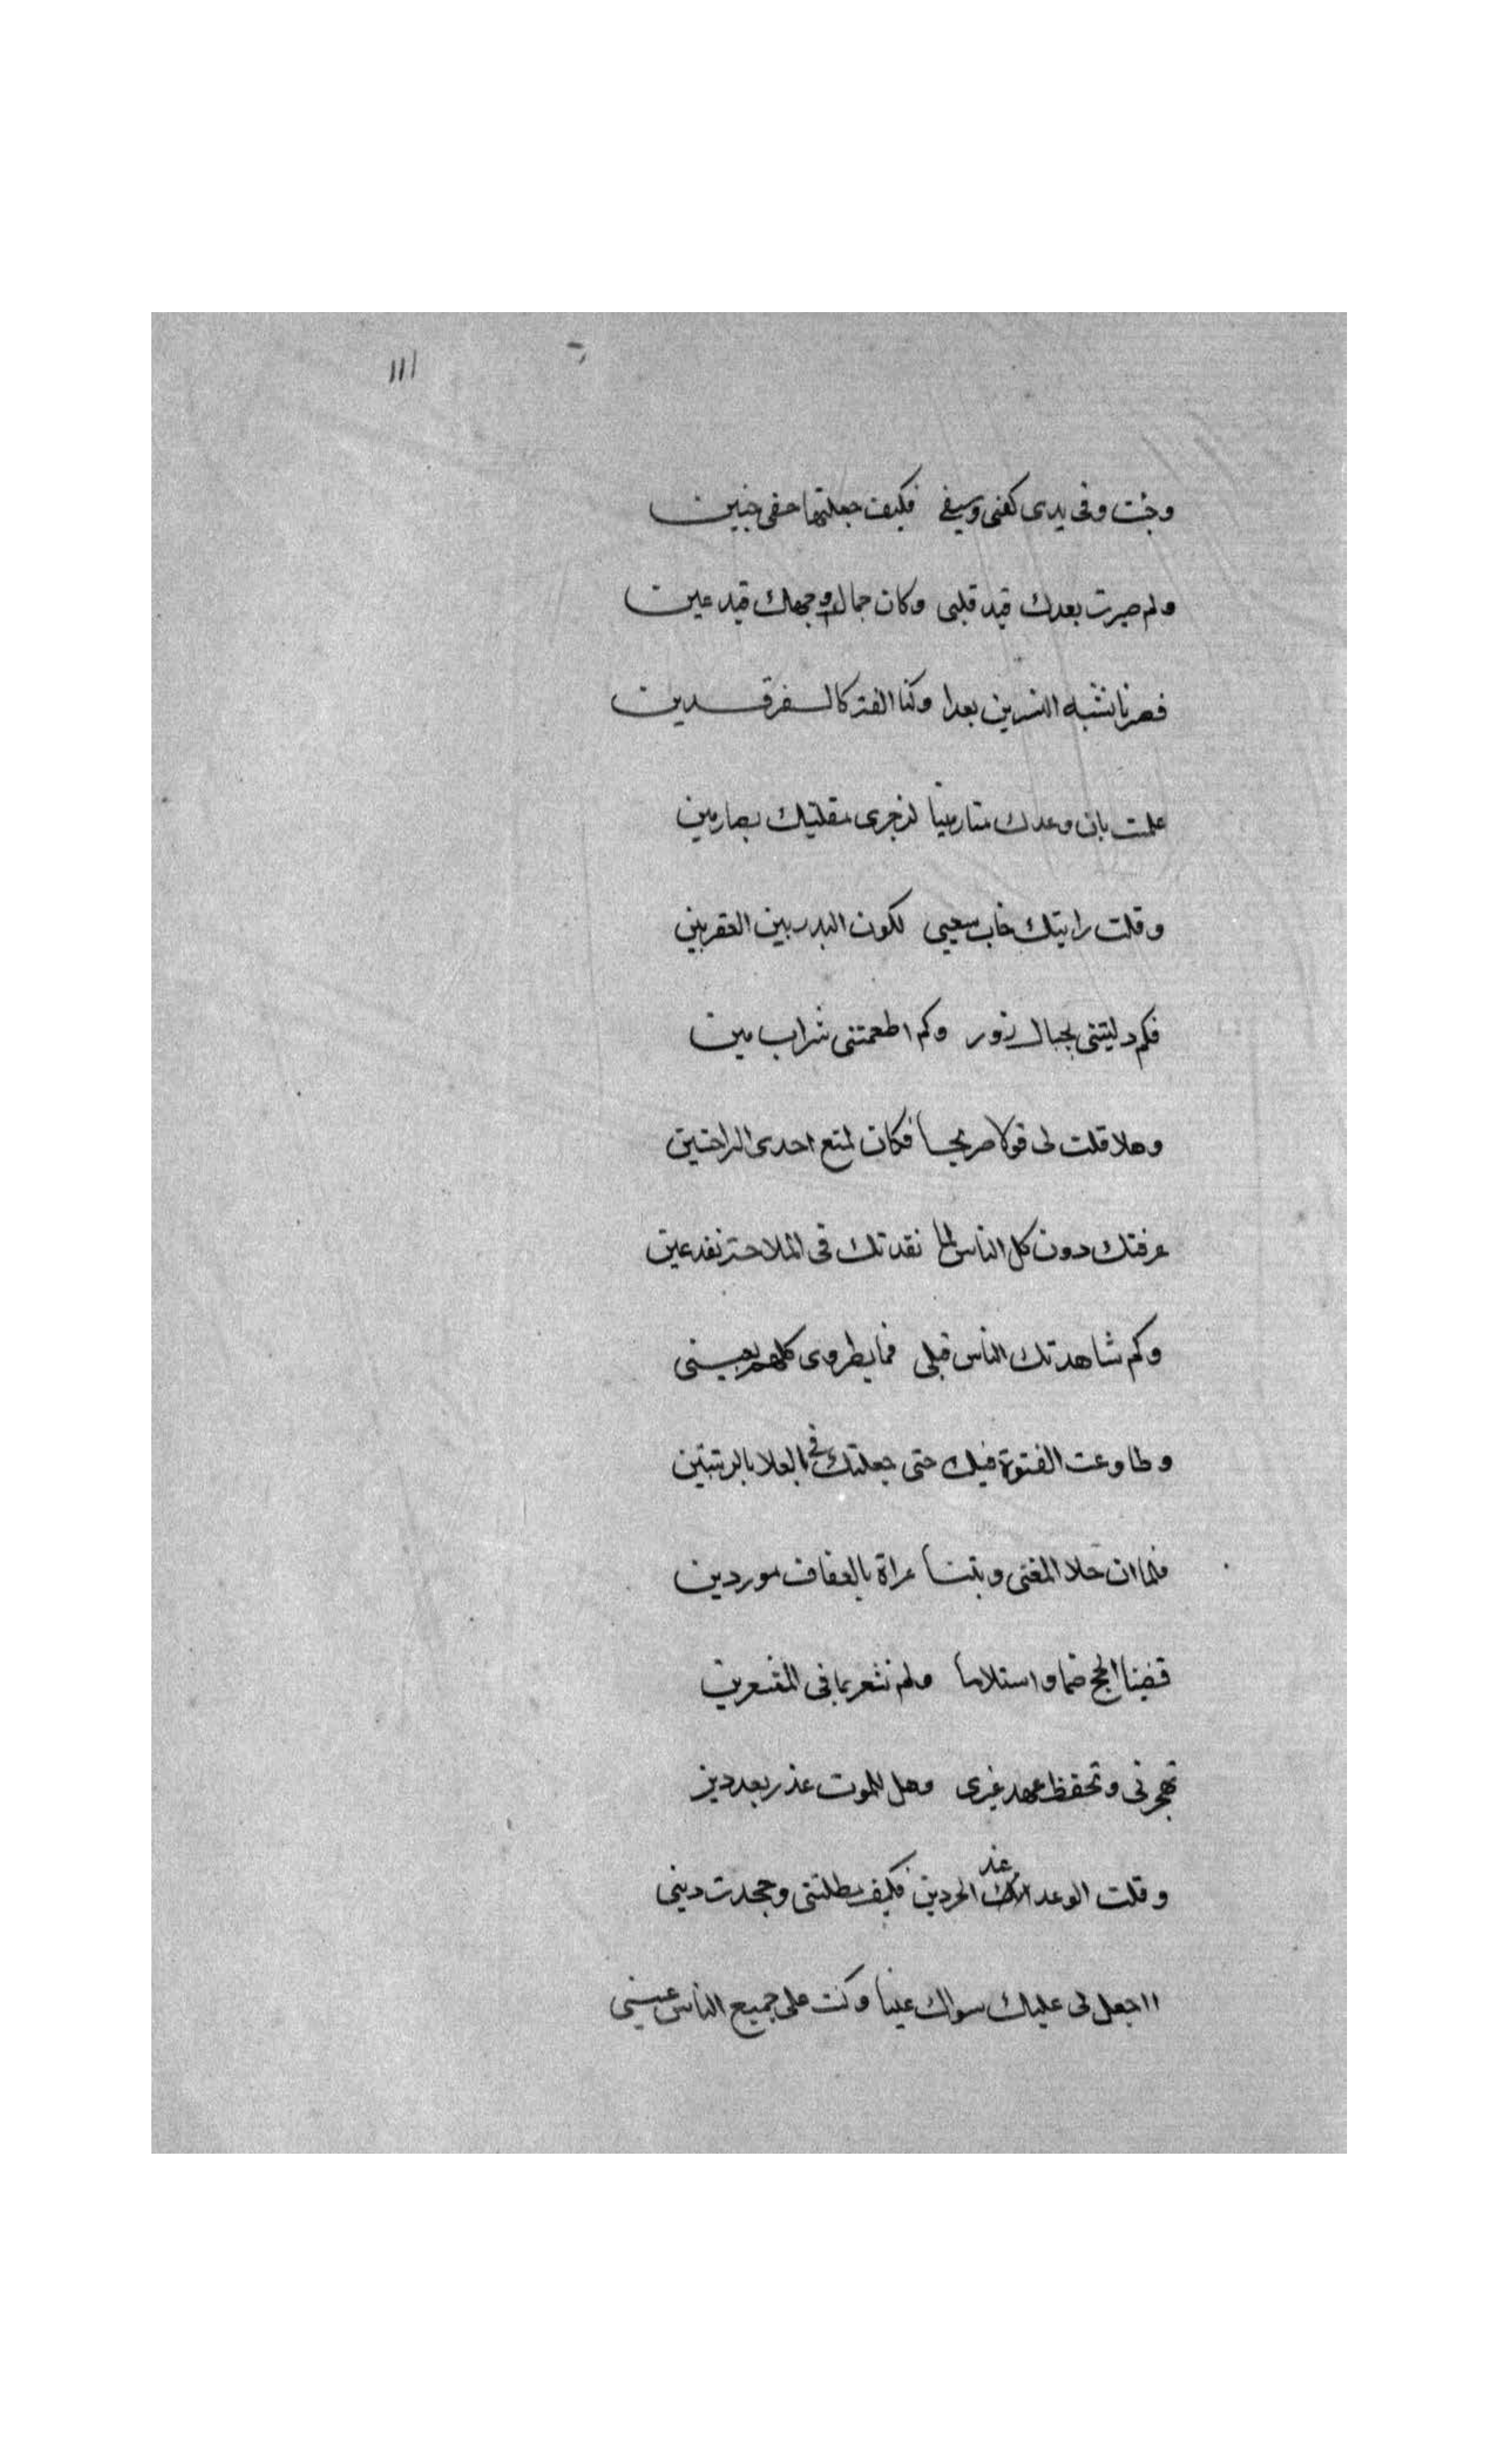 ١١١
وجئت وفى يدى كفنى وسيفى فكيف جعلتها خفى حنين
ولم صيرت بعدك قيد قلبى وكان جمال وجهك قيد عين
فصرنا نشبه النسرين بعدا وكنا الفة كالفرقدين
علمت بان وعدك مينا لزجرى مقلتيك بصارمين
وقلت رايتك خاب سعيى لكون البدر بين العقربين
فكم دليتنى بحبال زور وكم اطعمتنى شراب مين
وهلا قلت لى قولا صريحا فكان لمنع احدى الراحتين
عرفتك دون كل الناس لما نقدتك فى الملاحة نقد عين
وكم شاهدتك الناس قبلى فما يطروى كلهم بعينى
وطاوعت الفتوة فيك حتى جعلتك فى العلا بالرتبتين
فلما ان خلا المغنى وبتنا عراة بالعفاف موردين
قضينا الحج ضما واستلاما ولم نشعر بما فى المشعرين
تهجرنى وتحفظ عهد غيرى وهل للموت عذر بعد دين
وقلت الوعد عند الحر دين فكيف مطلتنى وجحدت دينى
ااجعل لى عليك سواك عينا وكنت على جميع الناس عينى